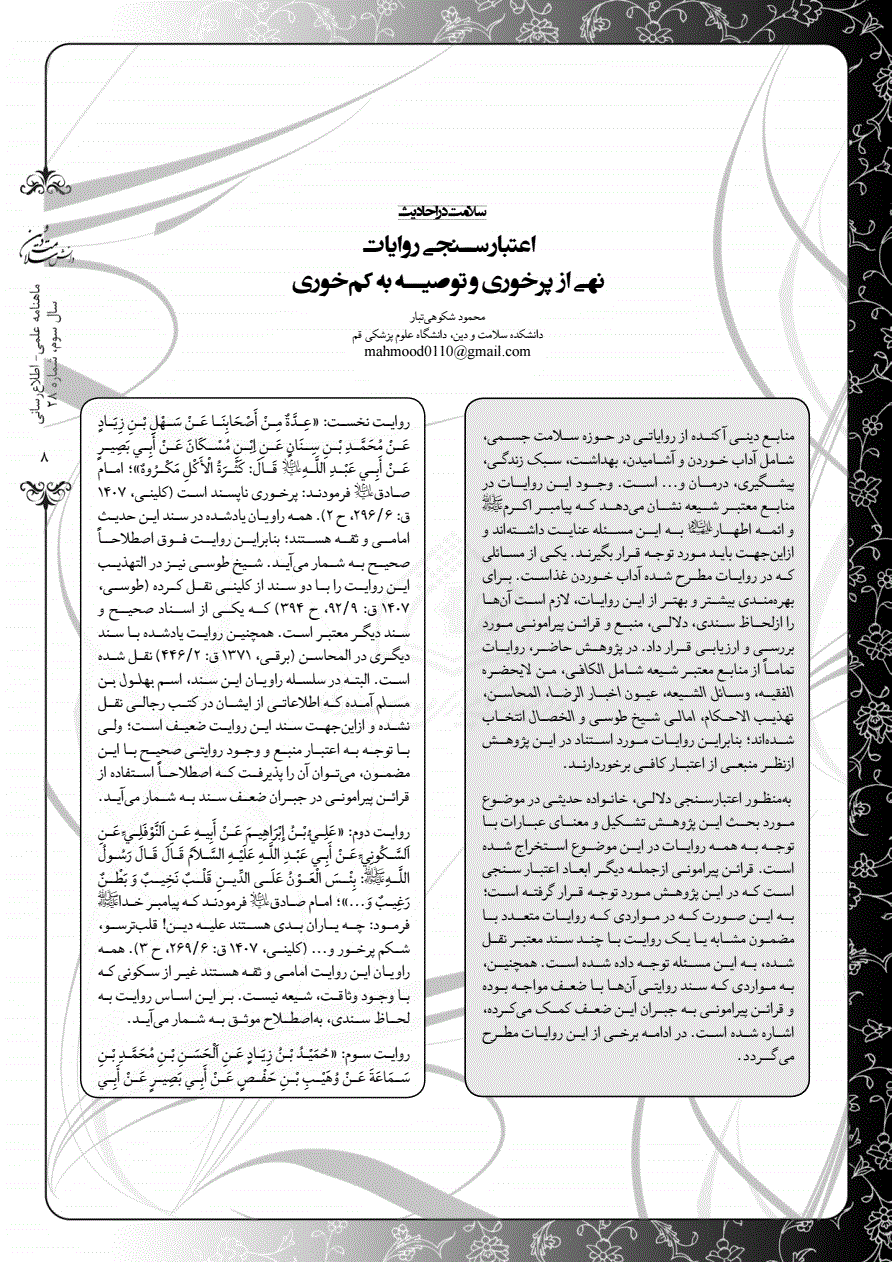 سلامت در احادیث
اعتبارسنجی روایات
نهی از پرخوری و توصیه به کم‌خوری
محمود شکوهی‌تبار
دانشکده سلامت و دین، دانشگاه علوم پزشکی قم
mahmood0110@gmail.com
منابع دینی آکنده از روایاتی در حوزه سلامت جسمی،
شامل آداب خوردن و آشامیدن، بهداشت، سبک زندگی،
پیشگیری، درمان و... است. وجود این روایات در
منابع معتبر شیعه نشان می‌دهد که پیامبر اکرم ﷺ
و ائمه اطهار به این مسئله عنایت داشته‌اند و
ازاین‌جهت باید مورد توجه قرار بگیرند. یکی از مسائلی
که در روایات مطرح شده آداب خوردن غذاست. برای
بهره‌مندی بیشتر و بهتر از این روایات، لازم است آن‌ها
را ازلحاظ سندی، دلالی، منبع و قرائن پیرامونی مورد
بررسی و ارزیابی قرار داد. در پژوهش حاضر، روایات
تماماً از منابع معتبر شیعه شامل الکافی، من لایحضره
الفقیه، وسائل الشیعه، عیون اخبار الرضا، المحاسن،
تهذیب الاحکام، امالی شیخ طوسی و الخصال انتخاب
شده‌اند؛ بنابراین روایات مورد استناد در این پژوهش
ازنظر منبعی از اعتبار کافی برخوردارند.
به‌منظور اعتبارسنجی دلالی، خانواده حدیثی در موضوع
مورد بحث این پژوهش تشکیل و معنای عبارات با
توجه به همه روایات در این موضوع استخراج شده
است. قرائن پیرامونی ازجمله دیگر ابعاد اعتبار سنجی
است که در این پژوهش مورد توجه قرار گرفته است؛
به این صورت که در مواردی که روایات متعدد با
مضمون مشابه یا یک روایت با چند سند معتبر نقل
شده، به این مسئله توجه داده شده است. همچنین،
به مواردی که سند روایتی آن‌ها با ضعف مواجه بوده
و قرائن پیرامونی به جبران این ضعف کمک می‌کرده،
اشاره شده است. در ادامه برخی از این روایات مطرح
می‌گردد.
روایت نخست: «عِدَّةٌ مِنْ أَصْحَابِنَا عَنْ سَهْلِ بْنِ زِيَادٍ
عَنْ مُحَمَّدِ بْنِ سِنَانٍ عَنِ ابْنِ مُسْكَانَ عَنْ أَبِي بَصِيرٍ
عَنْ أَبِي عَبْدِ اللَّهِ قَالَ: كَثْرَةُ الْأَكْلِ مَكْرُوهٌ»؛ امام
صادق فرمودند: پرخوری ناپسند است (کلینی، ۱۴۰۷
ق: ۲۹۶/۶، ح ۲). همه راویان یادشده در سند این حدیث
امامی و ثقه هستند؛ بنابراین روایت فوق اصطلاحاً
صحیح به شمار می‌آید. شیخ طوسی نیز در التهذیب
این روایت را با دو سند از کلینی نقل کرده (طوسی،
۱۴۰۷ ق: ۹۲/۹، ح ۳۹۴) که یکی از اسناد صحیح و
سند دیگر معتبر است. همچنین روایت یادشده با سند
دیگری در المحاسن (برقی، ۱۳۷۱ ق: ۴۴۶/۲) نقل شده
است. البته در سلسله راویان این سند، اسم بهلول بن
مسلم آمده که اطلاعاتی از ایشان در کتب رجالی نقل
نشده و ازاین‌جهت سند این روایت ضعیف است؛ ولی
با توجه به اعتبار منبع و وجود روایتی صحیح با این
مضمون، می‌توان آن را پذیرفت که اصطلاحاً استفاده از
قرائن پیرامونی در جبران ضعف سند به شمار می‌آید.
روایت دوم: «عَلِيُّ بْنُ إِبْرَاهِيمَ عَنْ أَبِيهِ عَنِ اَلنَّوْفَلِيِّ عَنِ
اَلسَّكُونِيِّ عَنْ أَبِي عَبْدِ اللَّهِ عَلَيْهِ السَّلاَمُ قَالَ قَالَ رَسُولُ
اللَّهِ ﷺ: بِئْسَ الْعَوْنُ عَلَى الدِّينِ قَلْبٌ نَخِيبٌ وَ بَطْنٌ
رَغِيبٌ وَ...»؛ امام صادق فرمودند که پیامبر خدا ﷺ
فرمود: چه یاران بدی هستند علیه دین! قلب‌ترسو،
شکم پرخور و... (کلینی، ۱۴۰۷ ق: ۲۶۹/۶، ح ۳). همه
راویان این روایت امامی و ثقه هستند غیر از سکونی که
با وجود وثاقت، شیعه نیست. بر این اساس روایت به
لحاظ سندی، به‌اصطلاح موثق به شمار می‌آید.
روایت سوم: «حُمَيْدُ بْنُ زِيَادٍ عَنِ اَلْحَسَنِ بْنِ مُحَمَّدِ بْنِ
سَمَاعَةَ عَنْ وُهَيْبِ بْنِ حَفْصٍ عَنْ أَبِي بَصِيرٍ عَنْ أَبِي
دانش سلامت و دین
ماهنامه علمی - اطلاع‌رسانی
سال سوم، شماره ۲۸
۸